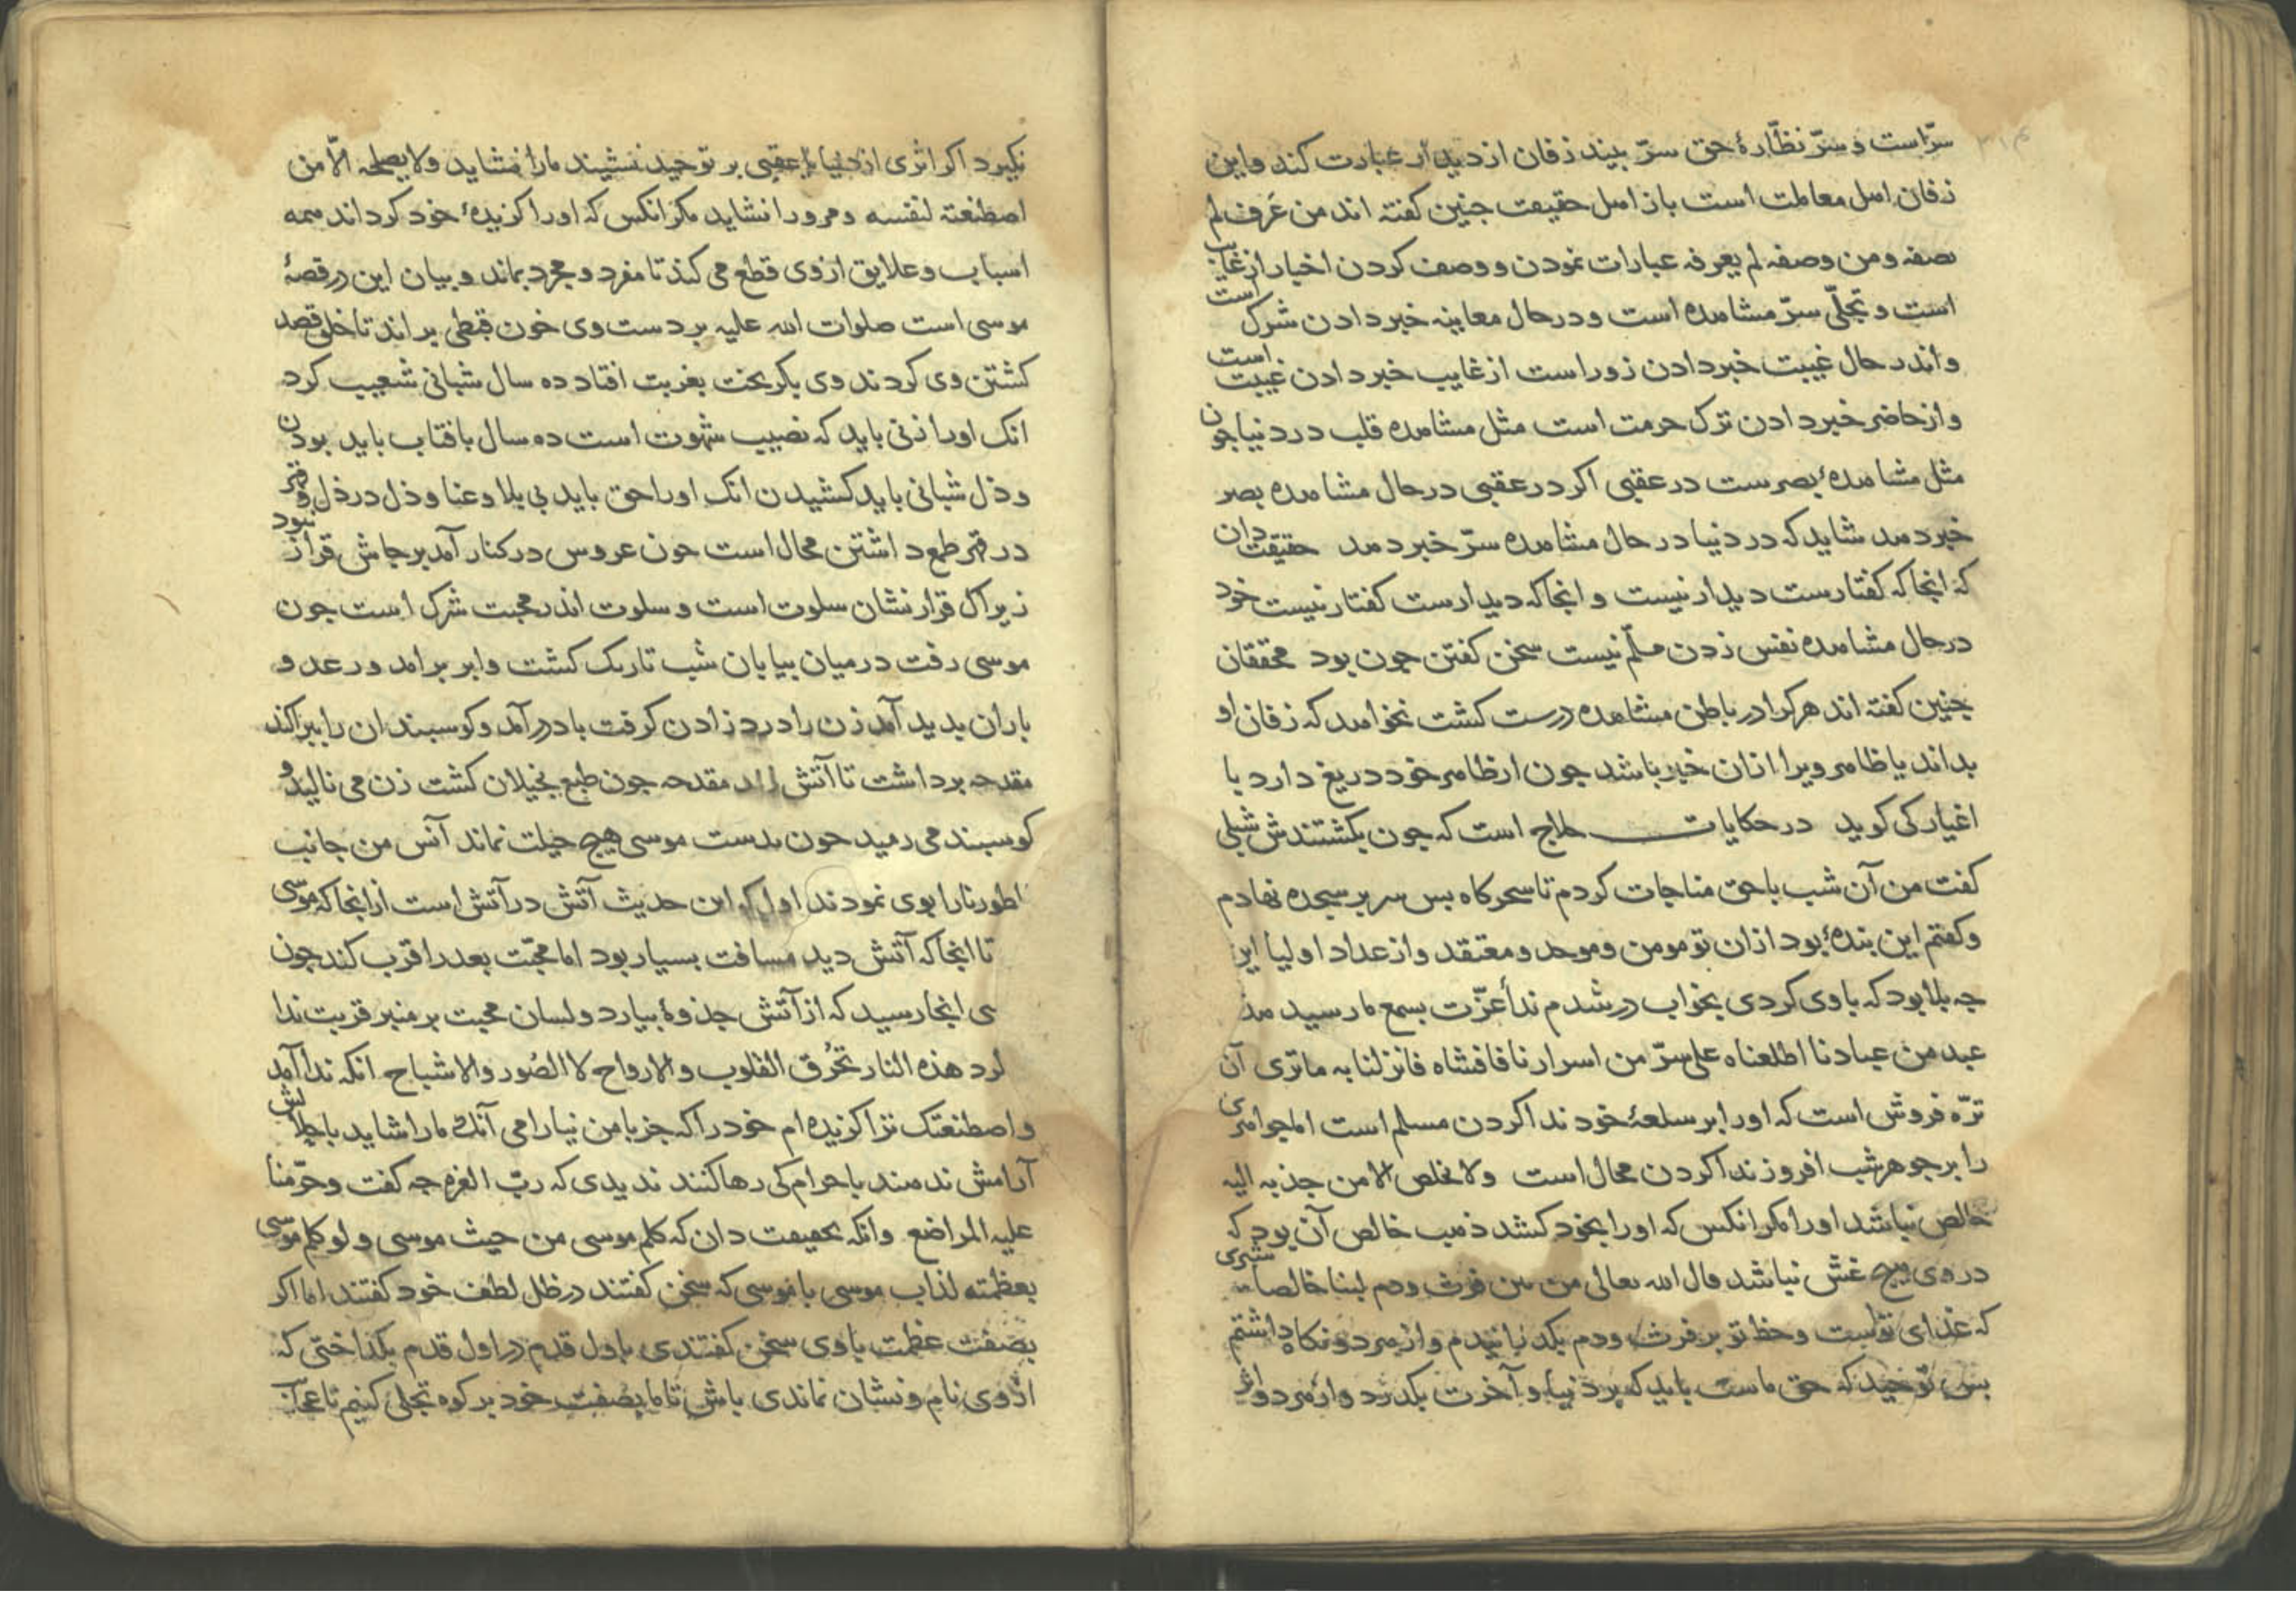 سرّاست و سرّ نظّارهٔ حق سرّ بیند زفان از دیدار عبارت کند و این
زفان اهل معاملت است باز اهل حقیقت جنین کفته اند من عَرف لم
یصفه و من وصفه لم یعرفه عبارات نمودن و وصف کردن اخبار از غایب
است و تجلّی سرّ مشاهده است و در حال معاینه خبر دادن شرک است
و اندر حال غیبت خبر دادن زور است از غایب خبر دادن غیبت است
و از حاضر خبر دادن ترک حرمت است مثل مشاهده قلب در دنیا جون
مثل مشاهدهٔ بصرست در عقبی اکر در عقبی در حال مشاهده بصر
خبر دهد شاید که در دنیا در حال مشاهده سرّ خبر دهد حقیقت دان
که انجا که کفتارست دیدار نیست و انجا که دیدارست کفتار نیست خود
در حال مشاهده نفس زدن مسلّم نیست سخن کفتن جون بود محققان
جنین کفته اند هرکرا در باطن مشاهده درست کشت نخواهد که زفان او
بداند یا ظاهر ویرا ازان خبر باشد جون از ظاهر خود دریغ دارد با
اغیار کی کوید در حکایات حلاج است که جون بکشتندش شبلی
کفت من آن شب با حق مناجات کردم تا سحرکاه بس سر بر سجده نهادم
و کفتم این بندهٔ بود ازان تو مومن و موحد و معتقد و از عداد اولیا این
جه بلا بود که با وی کردی بخواب در شدم نداٴ عزّت بسمع ما رسید هذ
عبد من عبادنا اطلعناه علی سرّ من اسرارنا فافشاه فانزلنا به ماتری آن
ترّه فروش است که اورا بر سلعهٔ خود ندا کردن مسلم است اما جواهری
را بر جوهر شب افروز ندا کردن محال است ولا یخلص الا من جذبه الیه
خالص نباشد اورا مکر انکس که اورا بخود کشد ذهب خالص آن بود که
در وی هیج غش نباشد قال الله تعالی من بین فرث و دم لبنا خالصا شیری
که غذای تواست و حظ تو بر فرث و دم بکذرانیدم و از هر دو نکاه داشتم
بس توحید که حق ماست باید که بر دنیا و آخرت بکذرد و از هر دو اثر
نکیرد اکر اثری از دنیا یا عقبی بر توحید نشیند مارا نشاید ولا یصلحه الّا من
اصطنعته لنفسه و مرورا نشاید مکر انکس که اورا کزیدهٔ خود کرداند همه
اسباب و علایق از وی قطع می کند تا مفرد و مجرد بماند و بیان این در قصهٔ
موسی است صلوات الله علیه بر دست وی خون قبطی براند تا خلق قصد
کشتن وی کردند وی بکریخت بغربت افتاد ده سال شبانی شعیب کرد
انک اورا زنی باید که نصیب شهوت است ده سال بافتاب باید بودن
و ذل شبانی باید کشیدن انک اورا حق باید بی بلا و عنا و ذل در ذل و قهر
در قهر طمع داشتن محال است جون عروس در کنار آمد بر جاش قرار نبود
زیراک قرار نشان سلوت است و سلوت اندر محبت شرک است جون
موسی رفت در میان بیابان شب تاریک کشت و ابر برامد و رعد و
باران بدید آمد زن را درد زادن کرفت باد درآمد و کوسبندان را ببراکند
مقدحه برداشت تا آتش زند مقدحه جون طبع بخیلان کشت زن می نالید و
کوسبند می رمید جون بدست موسی هیج حیلت نماند آنس من جانب
الطور نارا بوی نمودند اول که این حدیث آتش در آتش است از انجا که موسی
تا انجا که آتش دید مسافت بسیار بود اما محبّت بعد را قرب کند جون
سی انجا رسید که از آتش جذوهٔ بیارد و لسان محبت بر منبر قربت ندا
کرد هذه النار تحرُق القلوب والارواح لا الصُور والاشباح انکه ندا آمد
و اصطنعتک ترا کزیده ام خود را که جز با من نیارامی آنک مارا شاید با حلالش
آرامش ندهند با حرام کی رها کنند ندیدی که ربّ العزه جه کفت و حرّمنا
علیه المراضع وانکه بحقیقت دان که کلم موسی من حیث موسی و لو کلم موسی
بعظمته لذاب موسی با موسی که سخن کفتند در ظل لطف خود کفتند اما اکر
بصفت عظمت با وی سخن کفتندی باول قدم در اول قدم بکداختی که
از وی نام و نشان نماندی باش تا ما بصفت خود بر کوه تجلی کنیم تا عجز